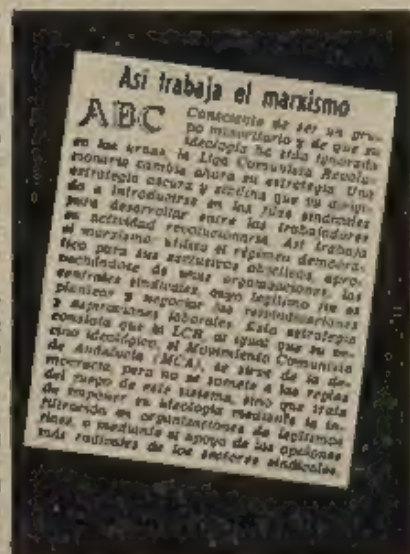 Así trabaja el marxismo
ABC Consciente de ser un gru-
po minoritario y de que su
ideología ha sido ignorada
en las urnas, la Liga Comunista Revolu-
cionaria cambia ahora su estrategia. Una
estrategia oscura y que va dirigi-
da a introducirse en las filas sindicales
para desarrollar entre los trabajadores
su actividad revolucionaria. Así trabaja
el marxismo: utiliza el régimen democrá-
tico para sus exclusivos objetivos, apro-
vechándose de unas organizaciones, las
centrales sindicales, cuyo legítimo fin es
plantear y negociar las reivindicaciones
y aspiraciones laborales. Esta estrategia
consiste que la LCR, al igual que su ve-
cino ideológico, el Movimiento Comunista
de Andalucía (MCA), se sirve de la de-
mocracia, pero no se somete a las reglas
del juego de este sistema, sino que trata
de imponer su ideología mediante la in-
filtración en organizaciones de legítimos
fines, o mediante el apoyo de las opciones
más radicales de los sectores sindicales.